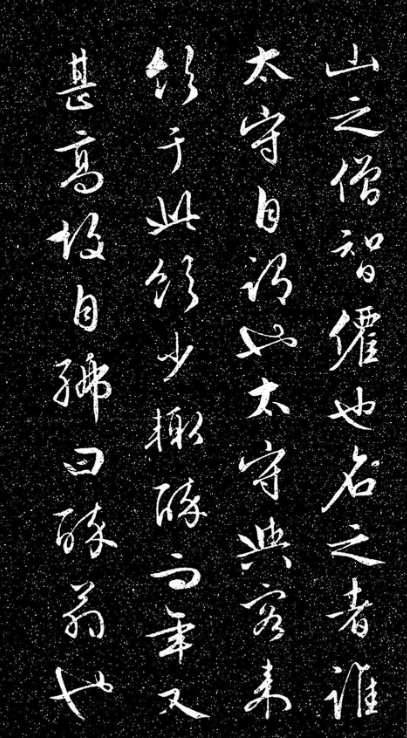 山之僧智僊也名之者誰
太守自謂也太守與客來
飲于此飲少輒醉而年又
甚高故自號曰醉翁也